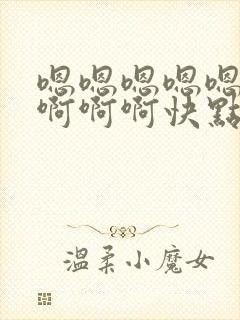 嗯嗯嗯嗯嗯
啊啊啊快點
温柔小魔女